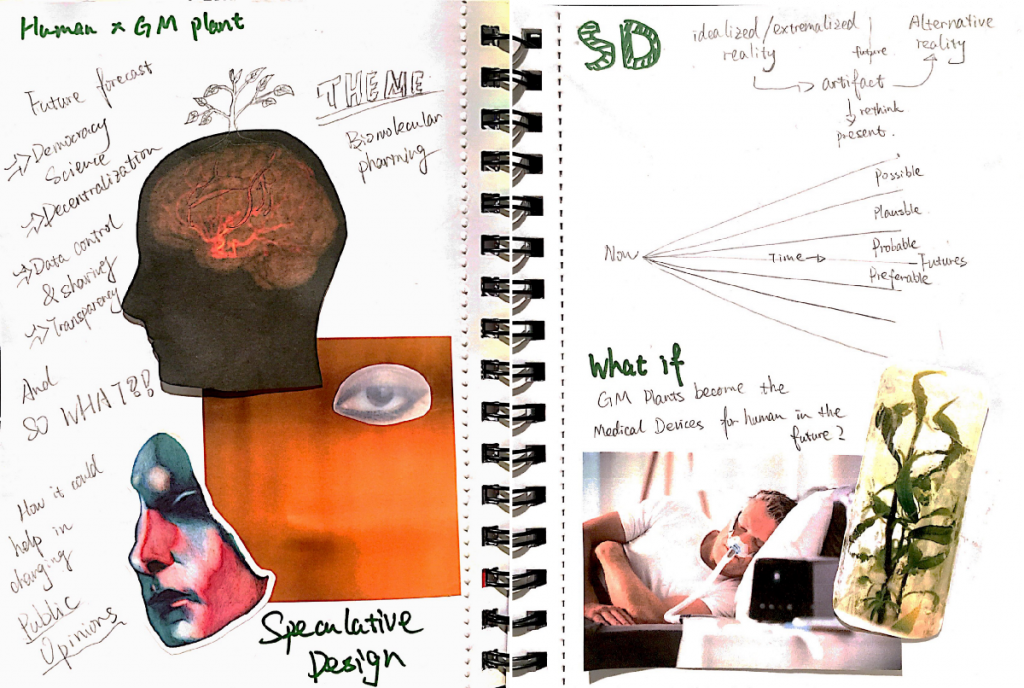 Human x GM plant
Future forecast
Democracy
Science
Decentralization
Data control
& sharing
Transparency
And
SO WHAT??
How it could
help in
changing
Public
Opinions
THEME
Biomolecular
pharming
Speculative
Design
SD
idealized/extremalized
reality
future
Alternative
reality
artifact
rethink
present.
Now
Time
Possible
Plausable
Probable
Futures
Preferable
What if
GM Plants become the
Medical Devices for human in the
future?